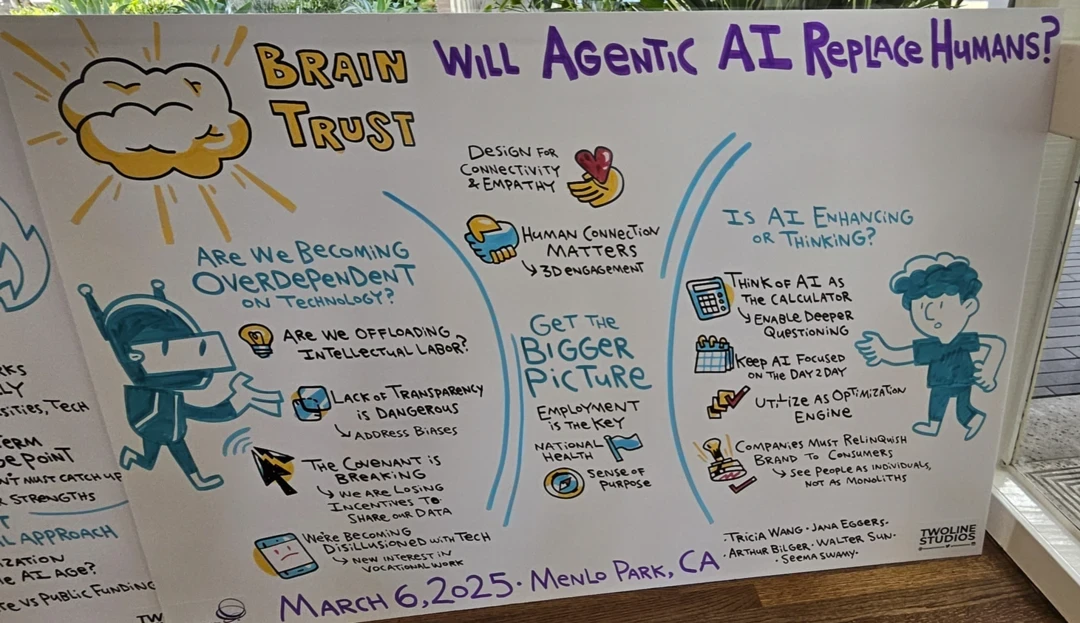 BRAIN
TRUST
WILL AGENTIC AI REPLACE HUMANS?
DESIGN FOR
CONNECTIVITY
& EMPATHY
HUMAN CONNECTION
MATTERS
↳ 3D ENGAGEMENT
ARE WE BECOMING
OVERDEPENDENT
ON TECHNOLOGY?
ARE WE OFFLOADING
INTELLECTUAL LABOR?
LACK OF TRANSPARENCY
IS DANGEROUS
↳ ADDRESS BIASES
THE COVENANT IS
BREAKING
↳ WE ARE LOSING
INCENTIVES TO
SHARE OUR DATA
WE'RE BECOMING
DISILLUSIONED WITH TECH
↳ NEW INTEREST IN
VOCATIONAL WORK
GET THE
BIGGER
PICTURE
EMPLOYMENT
IS THE KEY
NATIONAL
HEALTH
SENSE OF
PURPOSE
IS AI ENHANCING
OR THINKING?
THINK OF AI AS
THE CALCULATOR
↳ ENABLE DEEPER
QUESTIONING
KEEP AI FOCUSED
ON THE DAY 2 DAY
UTILIZE AS OPTIMIZATION
ENGINE
COMPANIES MUST RELINQUISH
BRAND TO CONSUMERS
↳ SEE PEOPLE AS INDIVIDUALS,
NOT AS MONOLITHS
·TRICIA WANG · JANA EGGERS·
·ARTHUR BILGER · WALTER SUN·
·SEEMA SWAMY·
TWOLINE
STUDIOS
MARCH 6, 2025 · MENLO PARK, CA
TECH
POINT
MUST CATCH UP
STRENGTHS
APPROACH
AI AGE?
VS PUBLIC FUNDING
TW